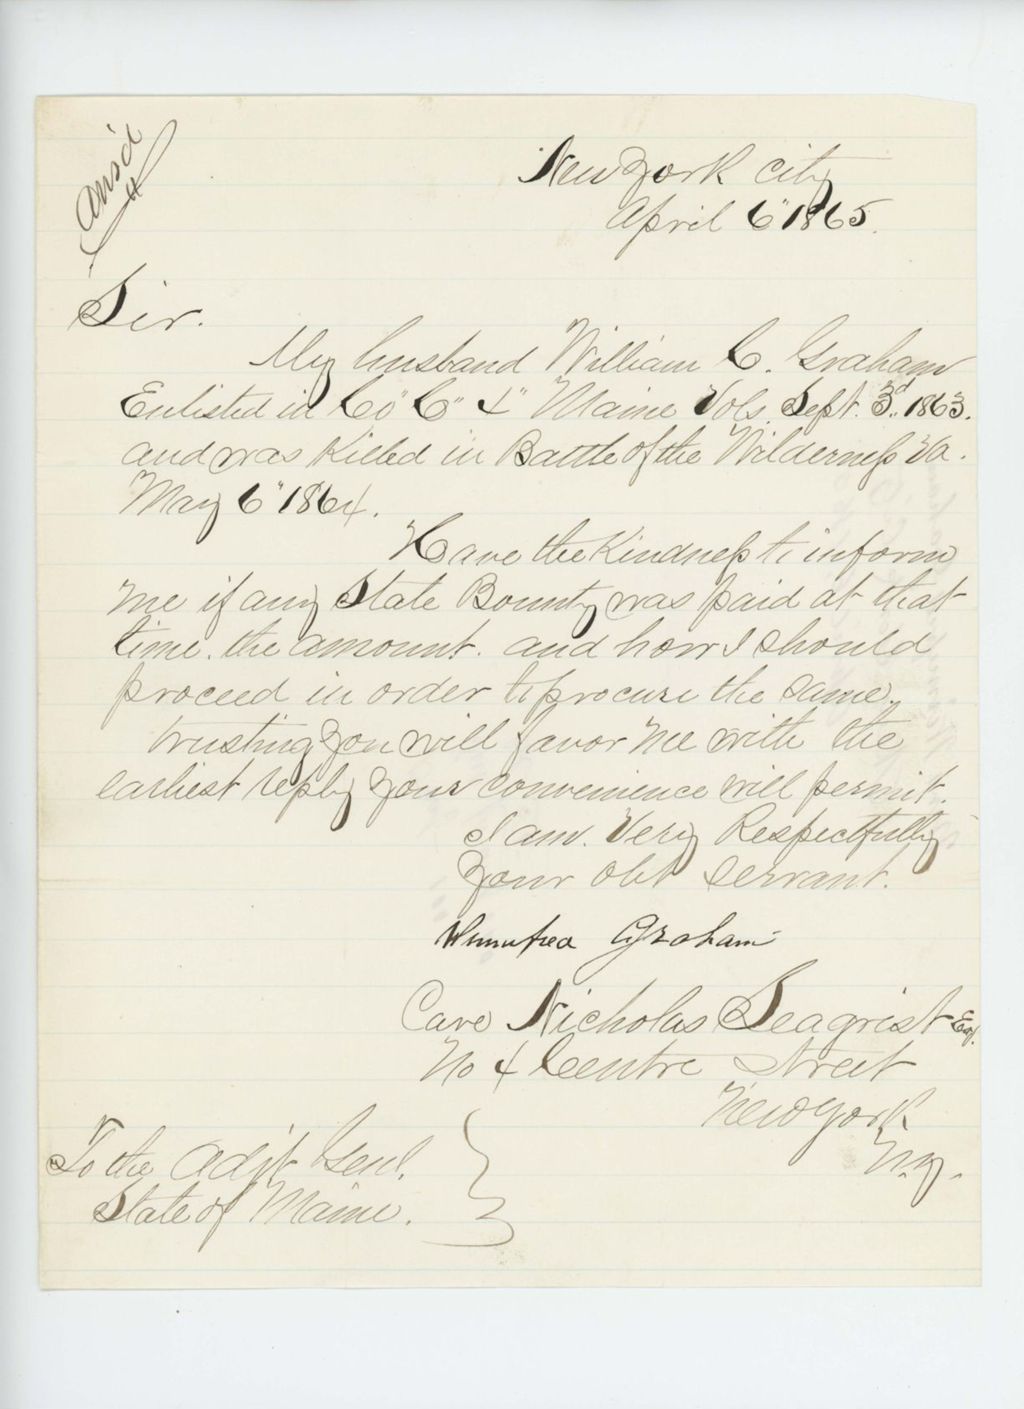 Ans'd
New York City
April 6" 1865.
Sir.
My husband William C. Graham
Enlisted in Co "C" 4" Maine Vols. Sept. 3d. 1863.
and was Killed in Battle of the Wilderness Va.
May 6" 1864.
Have the Kindness to inform
me if any State Bounty was paid at that
time. the amount. and how I should
proceed in order to procure the same.
trusting you will favor me with the
earliest reply your convenience will permit.
I am. Very Respectfully
Your Obt Servant.
Graham
Care Nicholas Seagrist Esq.
No 4 Centre Street
New York
N.Y.
To the Adjt Genl.
State of Maine.